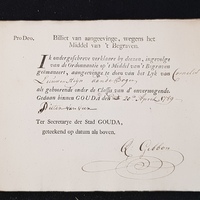 Pro Deo.
Billet van aangeevinge, wegens het
Middel van 't Begraven.
Ik ondergeschreve verklaare by deezen, ingevolge
van de Ordonnantie op 't Middel van 't Begraven
geëmaneert, aangevinge te doen van het Lyk van
als gehoorende onder de Classis van d' onvermogende.
Gedaan binnen GOUDA den 20e April 1789
Ter Secretarye der Stad GOUDA,
geteekend op datum als boven.